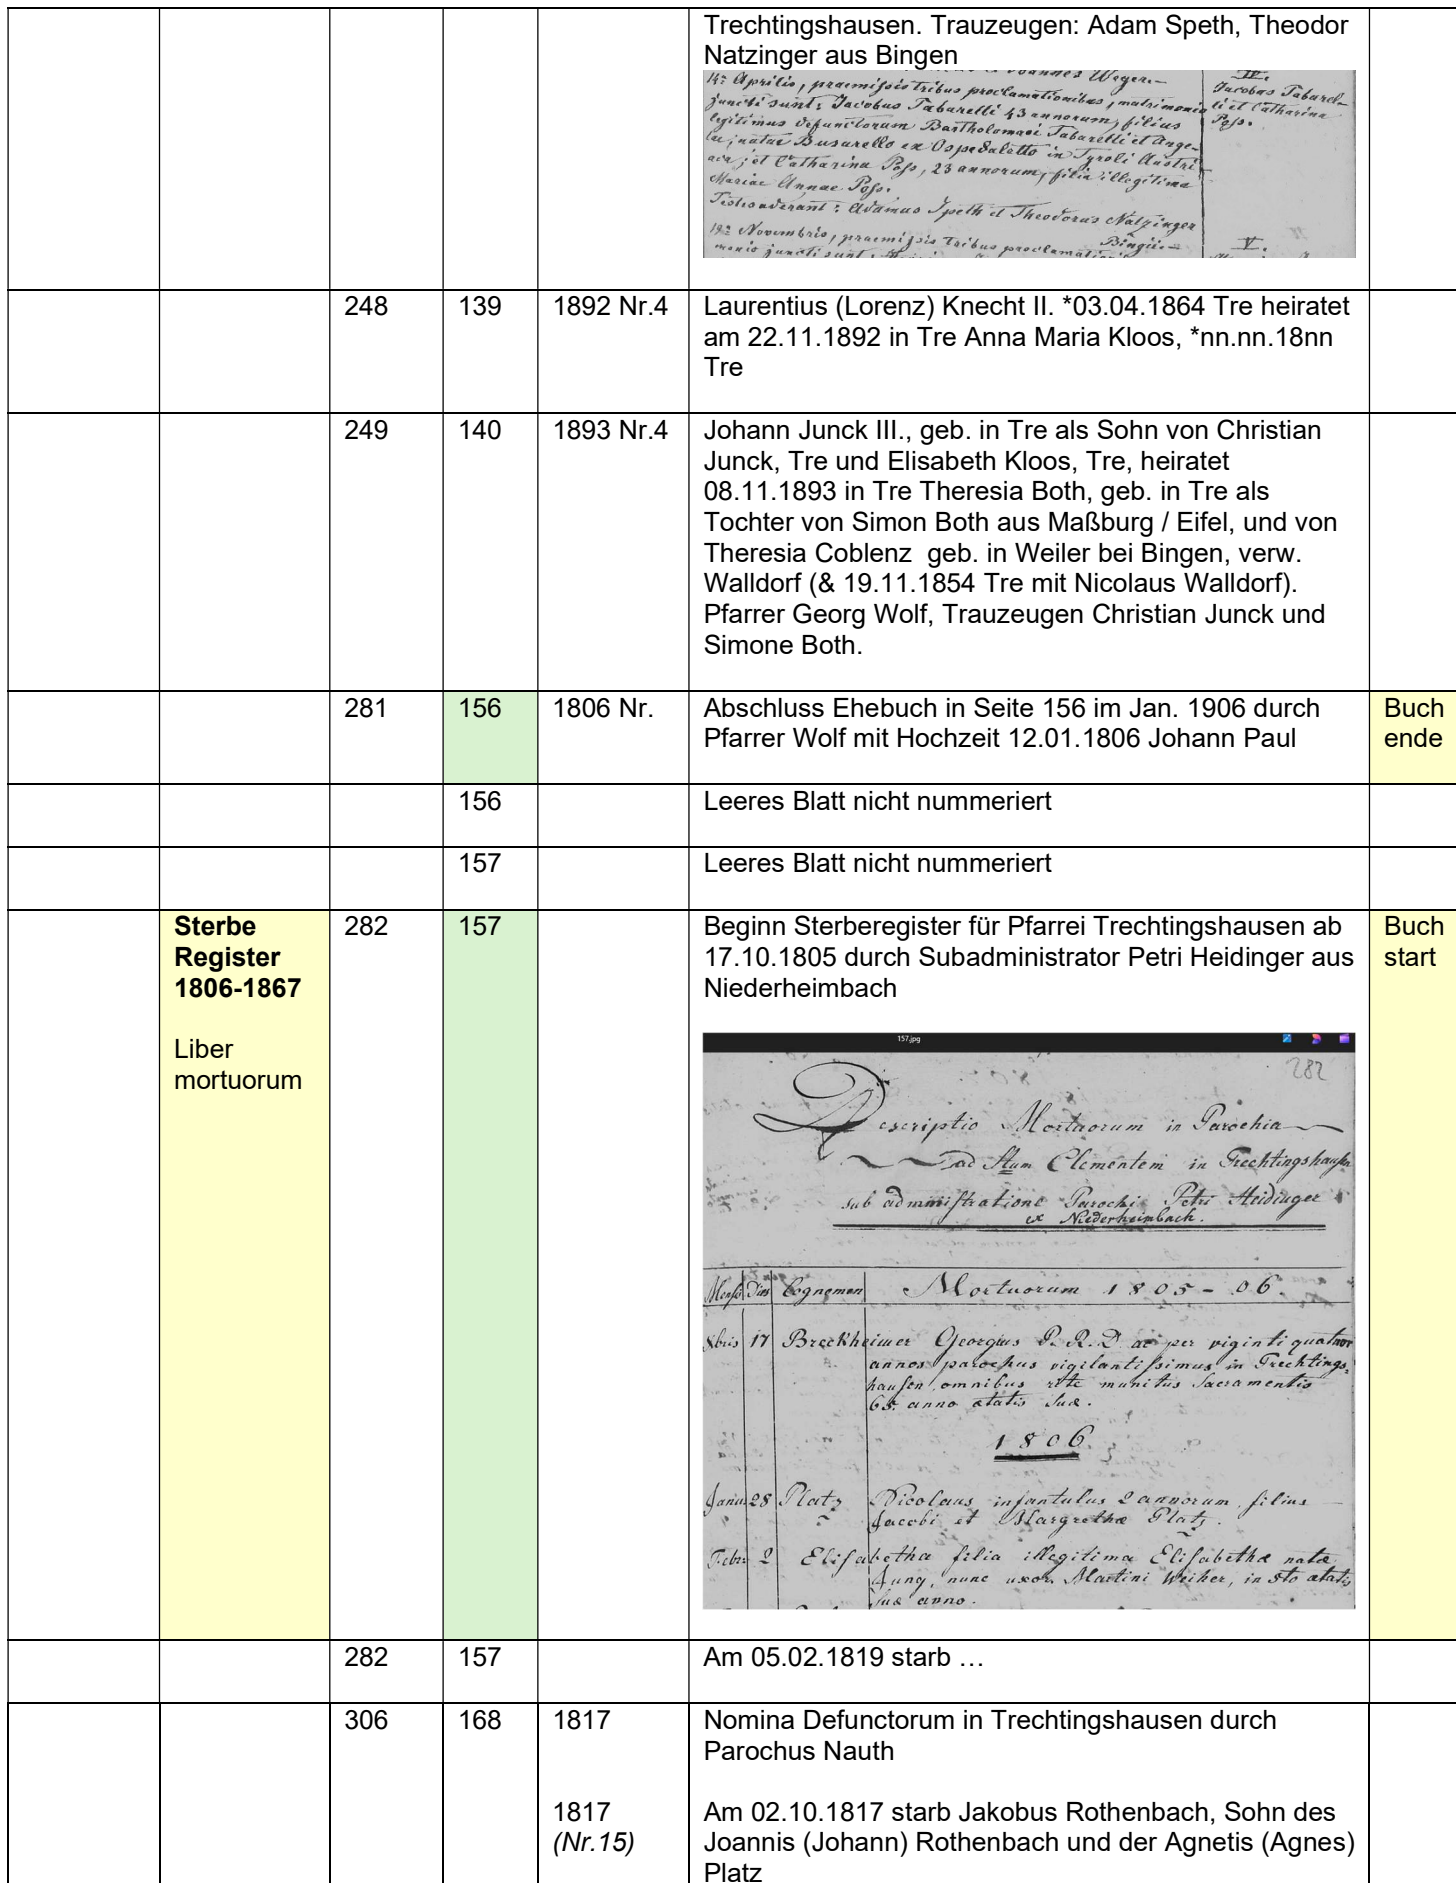 Trechtingshausen. Trauzeugen: Adam Speth, Theodor
Natzinger aus Bingen
Joannes Weger.
14ª Aprilis, praemissis tribus proclamationibus, matrimonio
juncti sunt: Jacobus Tabarelli 43 annorum, filius
legitimus defunctorum Bartholomaei Tabarelli et Ange-
lae, natae Busarello ex Ospedaletto in Tyroli Austri
aca; et Catharina Poss, 23 annorum, filia illegitima
Mariae Annae Poss.
Testes aderant: Adamus Speth et Theodorus Natzinger
Bingii.
IV.
Jacobus Tabarel-
li et Catharina
Poss.
19ª Novembris, praemissis tribus proclamati
monio juncti sunt:
V.
248 139 1892 Nr.4 Laurentius (Lorenz) Knecht II. *03.04.1864 Tre heiratet
am 22.11.1892 in Tre Anna Maria Kloos, *nn.nn.18nn
Tre
249 140 1893 Nr.4 Johann Junck III., geb. in Tre als Sohn von Christian
Junck, Tre und Elisabeth Kloos, Tre, heiratet
08.11.1893 in Tre Theresia Both, geb. in Tre als
Tochter von Simon Both aus Maßburg / Eifel, und von
Theresia Coblenz geb. in Weiler bei Bingen, verw.
Walldorf (& 19.11.1854 Tre mit Nicolaus Walldorf).
Pfarrer Georg Wolf, Trauzeugen Christian Junck und
Simone Both.
281 156 1806 Nr. Abschluss Ehebuch in Seite 156 im Jan. 1906 durch Buch
Pfarrer Wolf mit Hochzeit 12.01.1806 Johann Paul ende
156 Leeres Blatt nicht nummeriert
157 Leeres Blatt nicht nummeriert
Sterbe 282 157 Beginn Sterberegister für Pfarrei Trechtingshausen ab Buch
Register 17.10.1805 durch Subadministrator Petri Heidinger aus start
1806-1867 Niederheimbach
Liber
mortuorum
157.jpg
282
Descriptio Mortuorum in Parochia
ad Stum Clementem in Trechtingshausen
sub administratione Parochi Petri Heidinger
ex Niederheimbach.
Mensis Dies Cognomen Mortuorum 1805 - 06.
Xbris 17 Breckheimer Georgius P. R. D. ac per viginti quatuor
annos parochus vigilantissimus in Trechtings-
hausen, omnibus rite munitus Sacramentis
65. anno ætatis suæ.
1806.
Janu. 28 Platz Nicolaus infantulus 2 annorum, filius
Jacobi et Margrethæ Platz.
Febr. 2 Elisabetha filia illegitima Elisabethæ natæ
Jung, nunc uxor Martini Weiher, in 8to ætatis
suæ anno.
282 157 Am 05.02.1819 starb …
306 168 1817 Nomina Defunctorum in Trechtingshausen durch
Parochus Nauth
1817 Am 02.10.1817 starb Jakobus Rothenbach, Sohn des
(Nr.15) Joannis (Johann) Rothenbach und der Agnetis (Agnes)
Platz